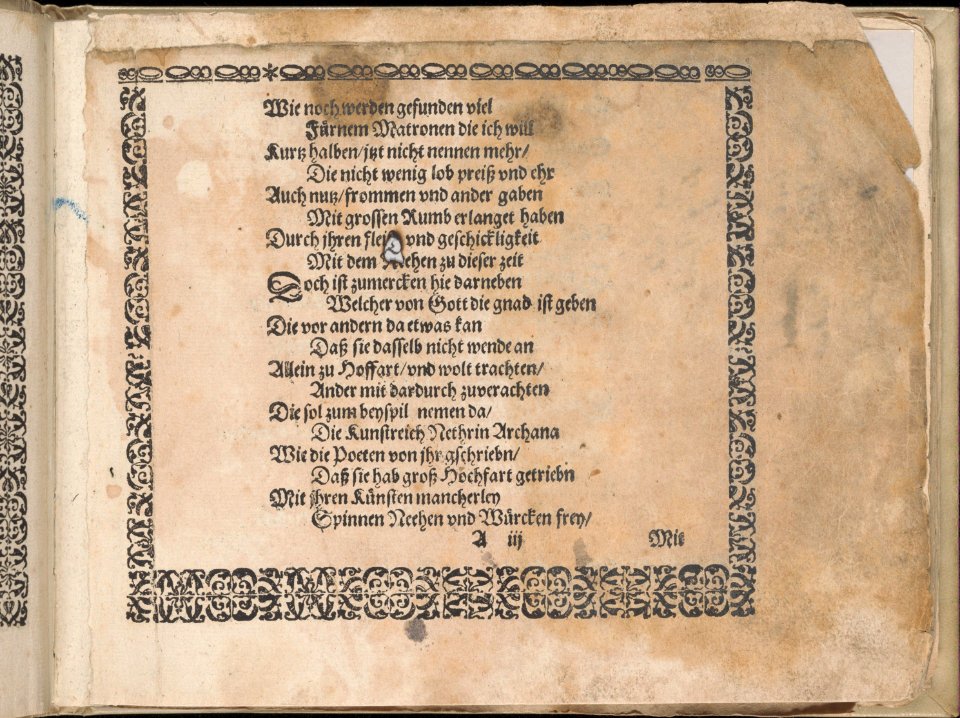 Wie noch werden gefunden viel
Fürnem Matronen die ich will
Kurtz halben/ jtzt nicht nennen mehr/
Die nicht wenig lob preiß vnd ehr
Auch nutz/ frommen vnd ander gaben
Mit grossen Rumb erlanget haben
Durch jhren vnd geschickligkeit
Mit dem zu dieser zeit
Doch ist zumercken hie darneben
Welcher von Gott die gnad ist geben
Die vor andern da etwas kan
Daß sie dasselb nicht wende an
Allein zu Hoffart/ vnd wolt trachten/
Ander mit dardurch zuverachten
Die sol zum beyspil nemen da/
Die Kunstreich Nethrin Archana
Wie die Poeten von jhr gschriebn/
Daß sie hab groß Hochfart getriebn
Mit jhren Künsten mancherley
Spinnen Neehen vnd Würcken frey/
A iij Mit